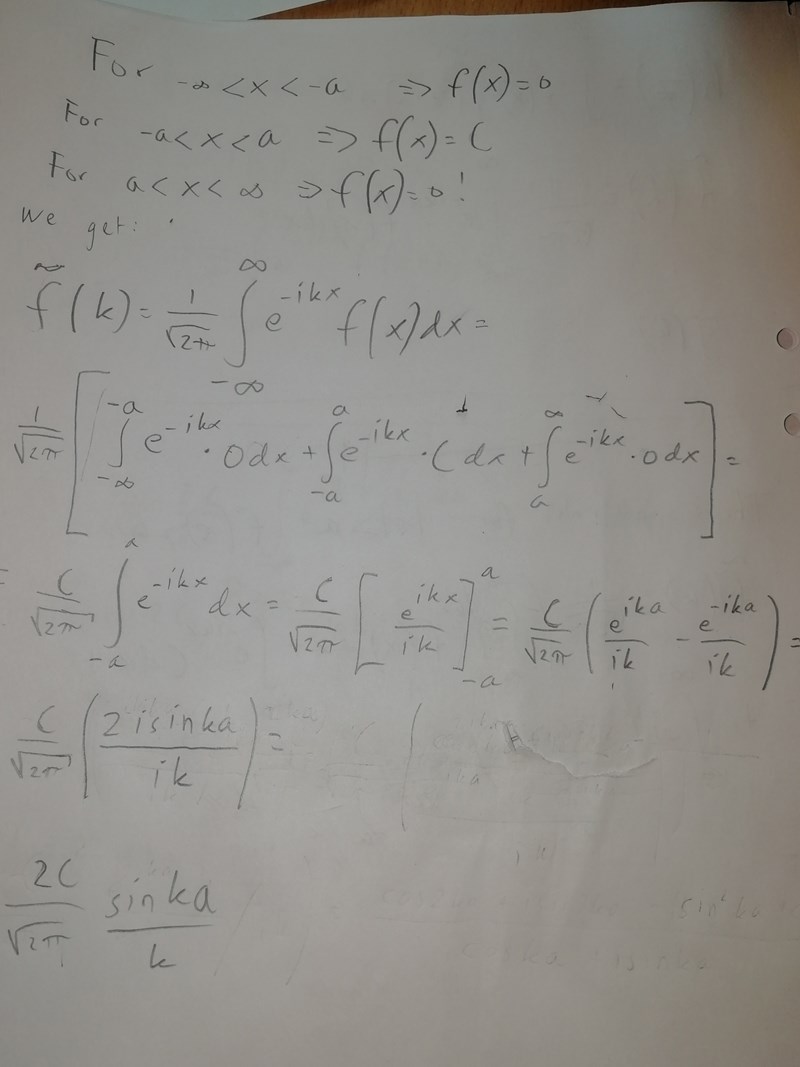 For -∞ < x < -a ⇒ f(x) = 0
For -a < x < a ⇒ f(x) = C
For a < x < ∞ ⇒ f(x) = 0 !
We get:
f̃(k) = 1/√2π ∫_{-∞}^{∞} e^{-ikx} f(x) dx =
1/√2π [ ∫_{-∞}^{-a} e^{-ikx} · 0 dx + ∫_{-a}^{a} e^{-ikx} · C dx + ∫_{a}^{∞} e^{-ikx} · 0 dx ] =
= C/√2π ∫_{-a}^{a} e^{-ikx} dx = C/√2π [ e^{ikx}/ik ]_{-a}^{a} = C/√2π ( e^{ika}/ik - e^{-ika}/ik ) =
C/√2π ( 2 i sin ka / ik ) =
2C/√2π sin ka / k